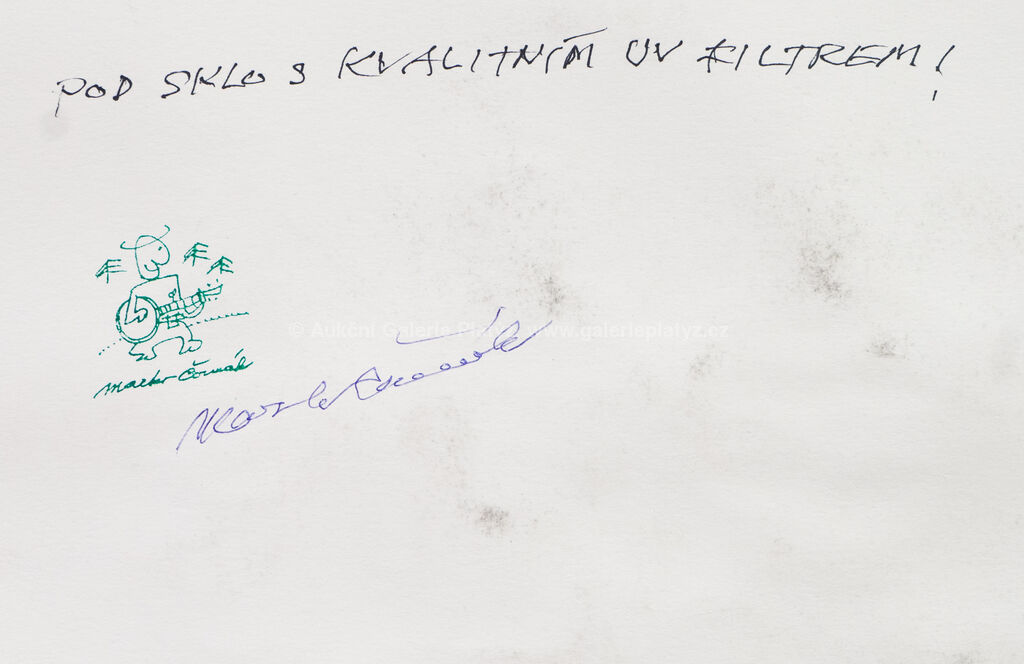 POD SKLO S KVALITNÍM UV FILTREM!
© Aukční Galerie Platýz, www.galerieplatyz.cz
Marko Čermák
Marko Čermák